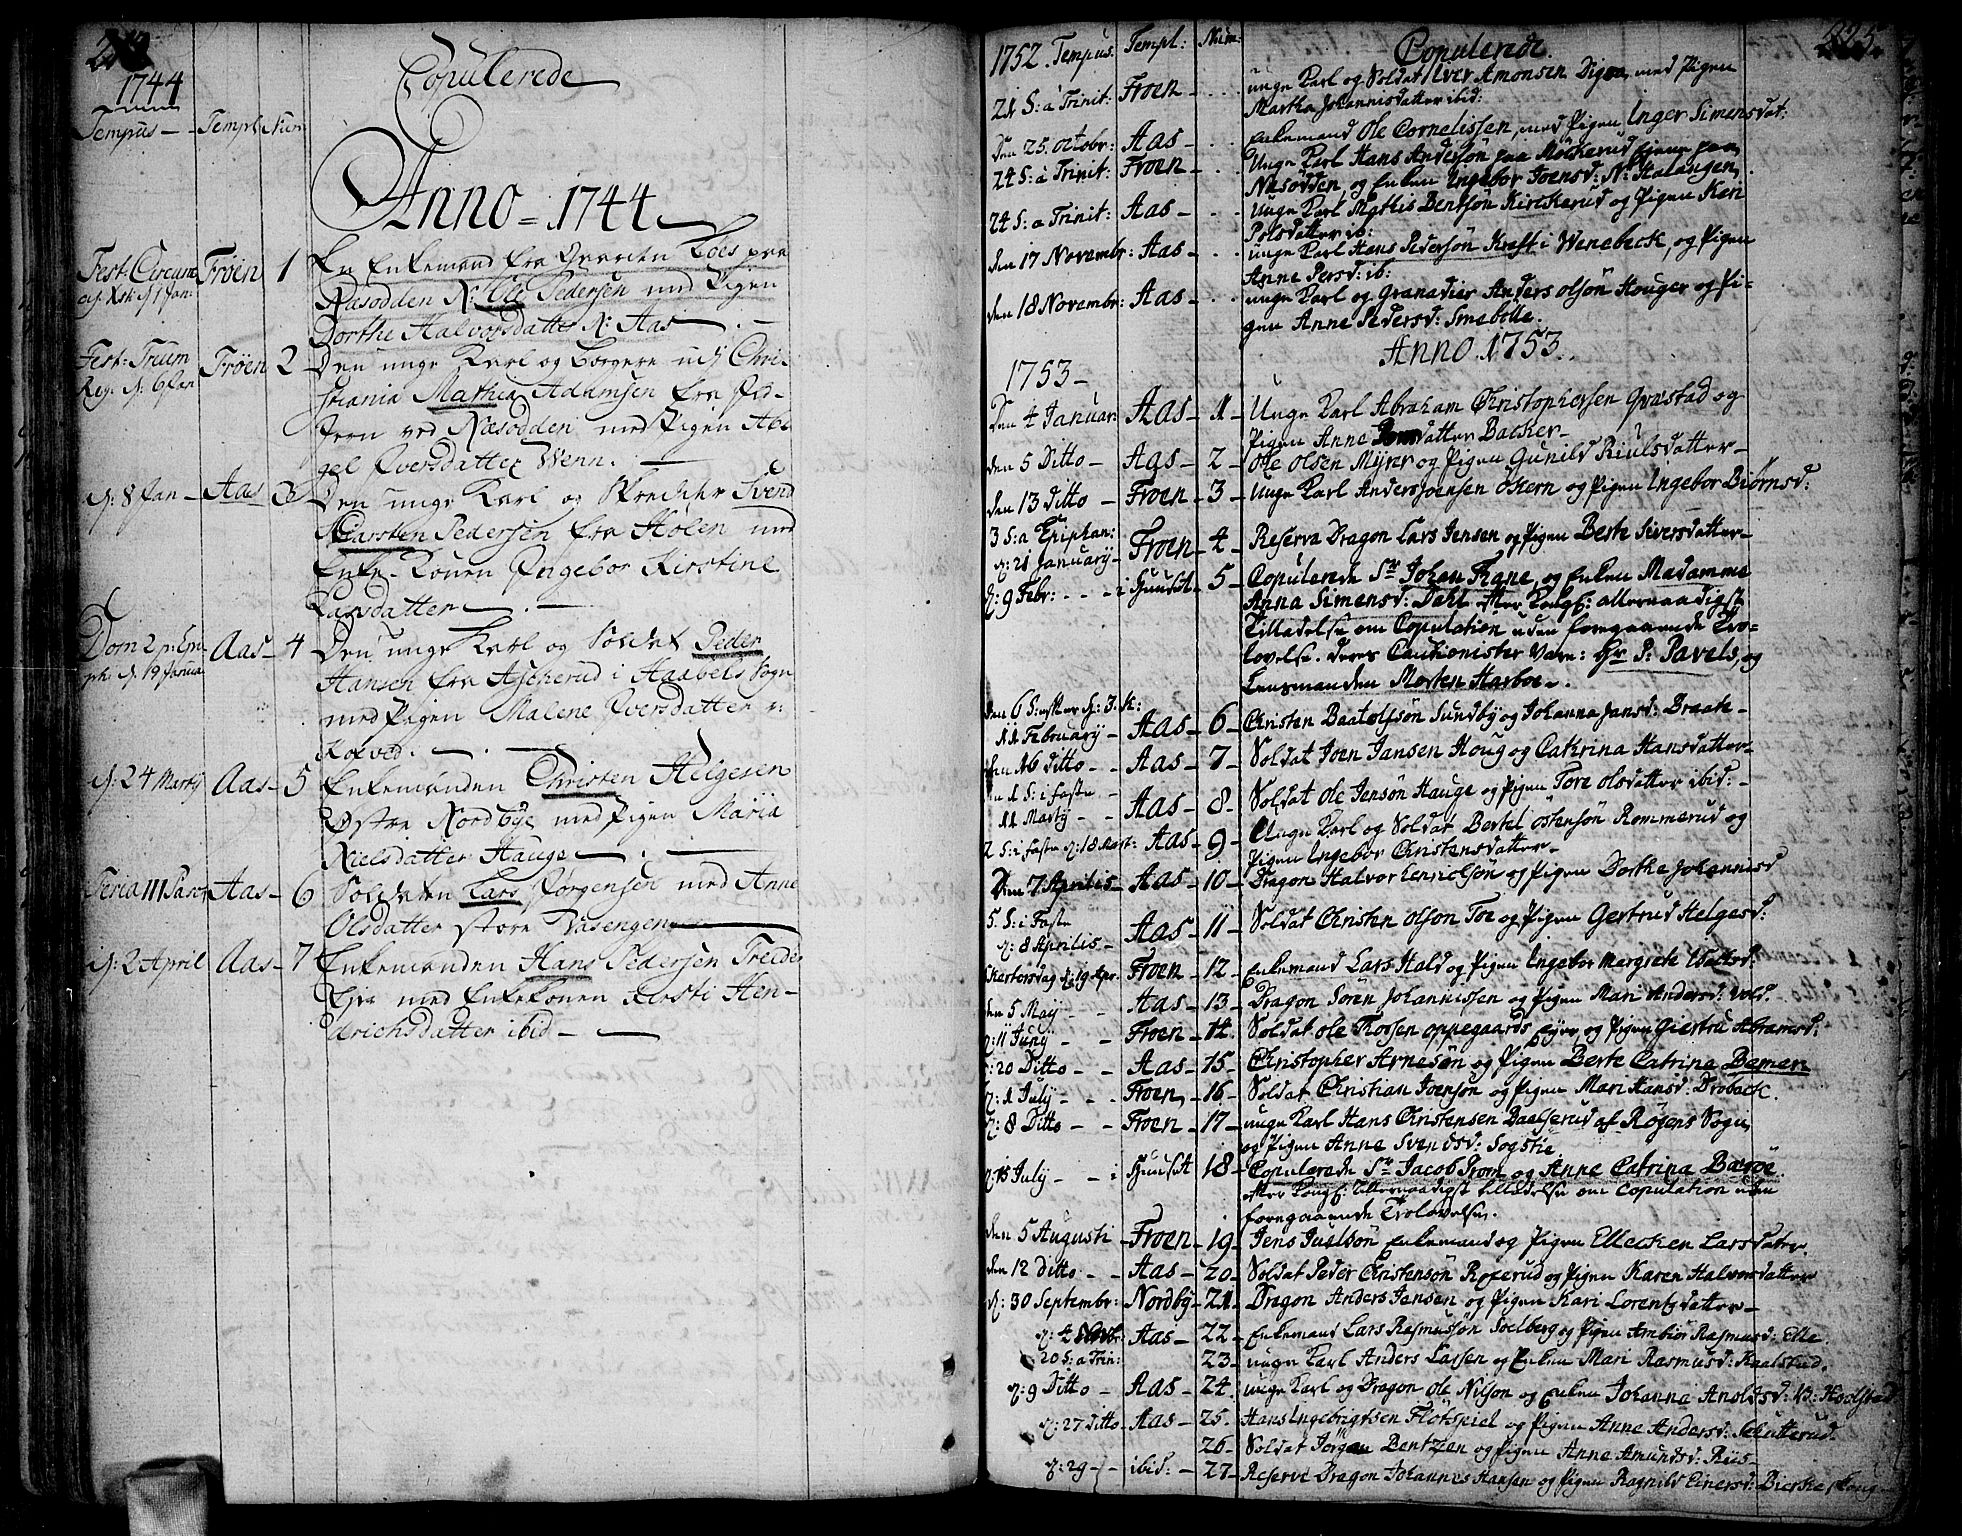 1744
Copulerede
Tempus - Templ Num
Anno - 1744
Fest: Circumc Frøen 1 En Enkemand fra Gaarden Toes paa
Næsodden N: Ole Pedersen med Pigen
Dorthe Halvorsdatter N: Aas
Fest: Trium Frøen 2 Den unge Karl og Borgere udj Chri-
Reg. d. 6 Jan stiania Mathia Adamsen fra
ved Næsodden med Pigen Abi-
gel Iversdatter Wenn.
d: 8 Jan - Aas 3 Den unge Karl og Skredder Svend
Carsten Pedersen fra Holen med
Enke-Konen Ingebor Kirstine
Larsdatter
Dom 2 p: Epi- Aas - 4 Den unge Karl og Soldat Peder
ph. d. 19 Janua Hansen fra Ascherud i Haabels Sogn
med Pigen Malene Iversdatter
d: 24 Martij Aas - 5 Enkemanden Christen Helgesen
Østre Nordbye med Pigen Maria
Nielsdatter Hauge
Feria III Pasc Aas - 6 Soldaten Lars Jørgensen med Anne
Olsdatter store Vasengen
d: 2 April Aas - 7 Enkemanden Hans Pedersen
med Enkekonen Kirsti Hen-
drichsdatter ibid -
1752. Tempus. Templ: Num: Copulerede 225
21 S: a Trinit: Froen - unge Karl og Soldat Iver Amonsen Digra, med Pigen
Martha Johannisdatter ibid:
Den 25. octobr: Aas - Enkemand Ole Cornelissen, med Pigen Inger Simensdat:
24 S: a Trinit: Froen - Unge Karl Hans Andersøn paa Möckerud paa
Næsödden, og Enken Ingebor Joensd: N: Halangen.
24 S: a Trinit: Aas - Unge Karl Mathis Bentsön Kirckerud og Pigen Kari
Polsdatter ib:
den 17 Novembr: Aas - unge Karl Hans Pedersön Kraft i Wenebeck, og Pigen
Anne Persd: ib:
den 18 Novembr: Aas - unge Karl og Granadier Anders olsön Houger og Pi-
gen Anne Pedersd: Smebölle.
Anno. 1753.
1753 -
Den 4 Januar: Aas - 1 - Unge Karl Abraham Christophersen Græstad og
Pigen Anne datter Backer -
den 5 Ditto - Aas - 2 - Ole Olsen Myrer og Pigen Gunild Kiulsdatter -
den 13 Ditto - Froen - 3 - Unge Karl Anders Joensen östern og Pigen Ingebor Biörnsd:
3 S: a Epiphan: Froen - 4 - Reserva Dragon Lars Jensen og Pigen Berte Siversdatter -
d: 21 Januarij -
d: 9 Febr: - - - i Huuset - 5 - Copulerede Sr Johan Frane, og Enken Madamme
Anna Simensd: Dahl efter Kongl: allernaadigst
Tilladelse om Copulation uden foregaaende Tro-
lovelse. deres Cautionister vare: Hr P: Pavels, og
Lensmanden Morten Harboe -.
Den 6 S: d: 3. K: 11 February - Aas - 6 - Christen Baatolfsön Sundby og Johanna Jansd: Braate -
Den 16 ditto - - Aas - 7 - Soldat Joen Jansen Houg og Catrina Hansdatter -
den 1 S: i faste - 11 Martij - - Aas - 8 - Soldat Ole Jensön Hauge og Pigen Tore Olsdatter ibid: -
2 S: i faste d: 18 Mart: Aas - 9 - Unge Karl og Soldat Bertel östensön Rommerud og
Pigen Ingebor Christensdatter -
Den 7 Aprilis - Aas - 10 - Dragon Halvor og Pigen Dorthe Johannisd
5. S: i Faste d: 8 Aprilis - Aas - 11 - Soldat Christen olsön Toe og Pigen Gertrud Helgesd:
Skiertorsdag d: 19 Apr: Froen - 12 - Enkemand Lars Hald og Pigen Ingebor Margrete
den 5 Maij - - Aas - 13 - Dragon Sören Johannissen og Pigen Mari Andersd: Vold.
d: 11 Junij - - Froen - 14 - Soldat Ole Thorsen oppegaards Eyre og Pigen Giertru Abramsd:
d: 20 Ditto - - Aas - 15 - Christopher Arnesön og Pigen Berte Catrina Bemen
d: 1 July - - - Froen - 16 - Soldat Christian Joensön og Pigen Mari Hansd: Dröback.
d: 8 Ditto - - Froen - 17 - unge Karl Hans Christensen Baalserud af Røgens Sogn,
og Pigen Anne Svendsd: Sogstie
d: 15 July - - i Huuset 18 - Copulerede Sr Jacob Prom og Anne Catrina Barøe
efter Kongl: Allernaadigst tilladelse om Copulation uden
foregaaende Trolovelse.
den 5 Augusti - Froen - 19 - Jens Juelsön Enkemand og Pigen Ellecken Larsdatter.
den 12 ditto - - Aas - 20 - Soldat Peder Christensön Roxerud og Pigen Karen Halvorsdatter
d: 30 Septembr: Nordby - 21 - Dragon Anders Jansen og Pigen Kari Lorentzdatter -
d: 4 octobr: Aas - 22 - Enkemand Lars Rasmussön Soelberg og Pigen Ambiör Rasmusd: Elle.
20 S: a Trin: 23 - unge Karl Anders Larsen og Enken Mari Rasmusd: Kaalstad.
d: 9 Ditto - Aas - 24. unge Karl og Dragon Ole Nilson og Enken Johanna Anoldsd: N:
d: 27 ditto - Aas - 25. Hans Ingebrigtsen Flötspiel og Pigen Anne Andersd: Schutterud.
26 - Soldat Jörgen Bentzen og Pigen Anne Amundsd: Riis -
d: 29 - - ibid: - 27 - Reserve Dragon Johannes Hansen og Pigen Ragnild Einersd: Bierke